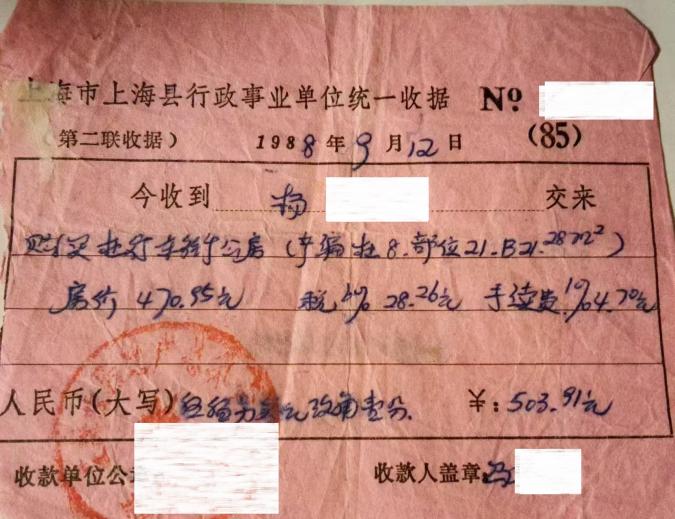 上海市上海县行政事业单位统一收据 №
(第二联收据) 1988年9月12日 (85)
今收到 杨 交来
购买 公房( 8.部位21.B21.28m²)
房价 470.95元 税6% 28.26元 手续费1%4.70元
人民币(大写)伍佰另叁元玖角壹分. ¥:503.91元
收款单位公 收款人盖章